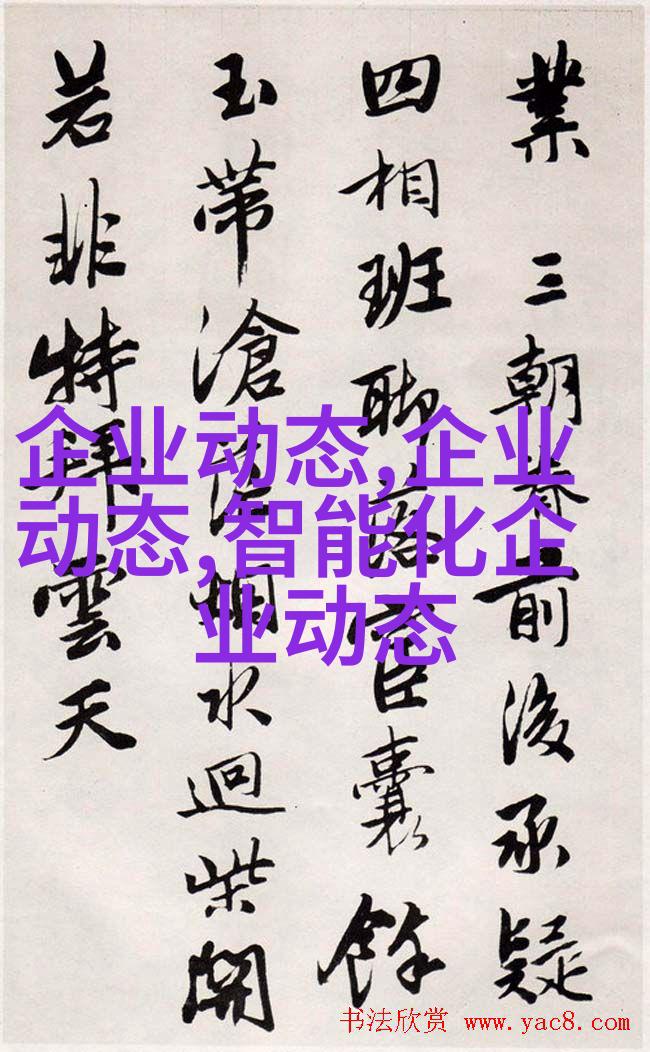 業 三朝前後承疑
四相班聊臣囊餘
玉帶滄烟水迴柴開
若非特拜雲天
企业动态,企业
动态,智能化企
业动态
书法欣赏 www.yac8.com